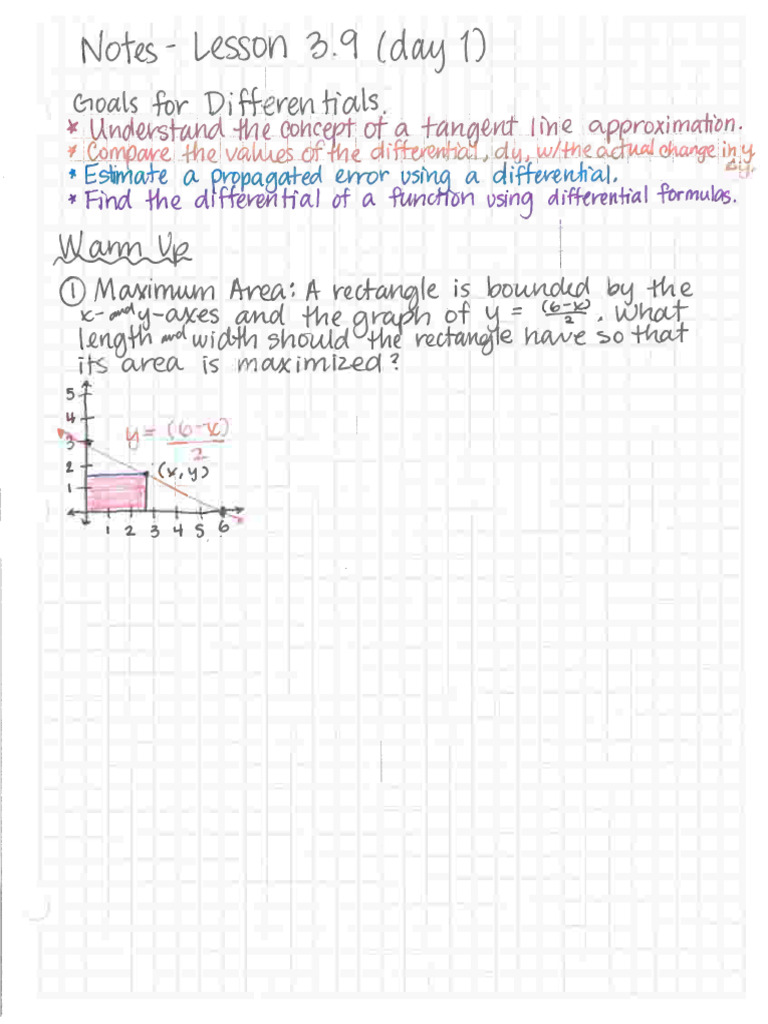 Notes - Lesson 3.9 (day 1)
Goals for Differentials.
* Understand the concept of a tangent line approximation.
* Compare the values of the differential, dy, w/the actual change in y
Δy.
* Estimate a propagated error using a differential.
* Find the differential of a function using differential formulas.
Warm Up
① Maximum Area: A rectangle is bounded by the
x- and y-axes and the graph of y = (6-x)/2. What
length and width should the rectangle have so that
its area is maximized?
5
4
3
2
1
y = (6-x)/2
(x, y)
1 2 3 4 5 6